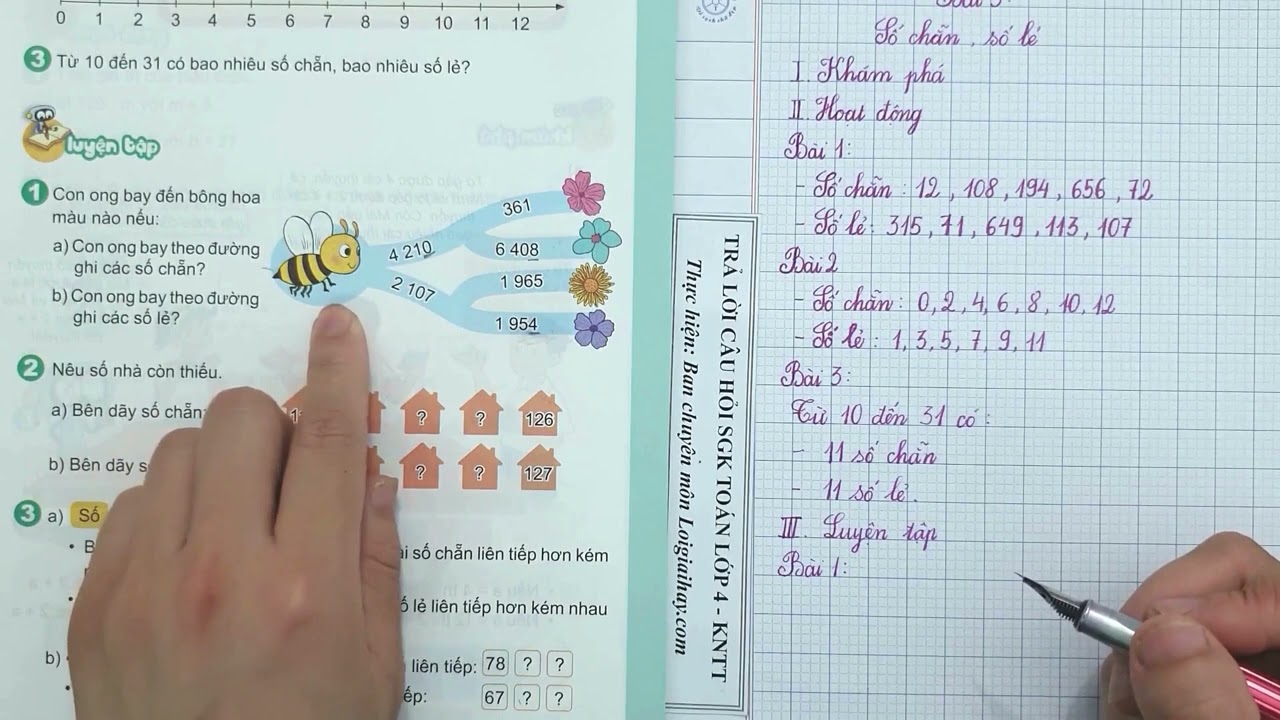 0 1 2 3 4 5 6 7 8 9 10 11 12
3 Từ 10 đến 31 có bao nhiêu số chẵn, bao nhiêu số lẻ?
luyện tập
1 Con ong bay đến bông hoa
màu nào nếu:
a) Con ong bay theo đường
ghi các số chẵn?
b) Con ong bay theo đường
ghi các số lẻ?
4 210
2 107
361
6 408
1 965
1 954
2 Nêu số nhà còn thiếu.
a) Bên dãy số chẵn:
? ? 126
b) Bên dãy s
? ? 127
3 a) Số
số chẵn liên tiếp hơn kém
lẻ liên tiếp hơn kém nhau
b)
liên tiếp: 78 ? ?
67 ? ?
TRẢ LỜI CÂU HỎI SGK TOÁN LỚP 4 - KNTT
Thực hiện: Ban chuyên môn Loigiaihay.com
Số chẵn, số lẻ
I. Khám phá
II. Hoạt động
Bài 1:
- Số chẵn : 12 , 108 , 194 , 656 , 72
- Số lẻ : 315 , 71 , 649 , 113 , 107
Bài 2
- Số chẵn : 0, 2, 4, 6, 8, 10, 12
- Số lẻ : 1, 3, 5, 7, 9, 11
Bài 3:
Từ 10 đến 31 có:
- 11 số chẵn
- 11 số lẻ.
III. Luyện tập
Bài 1: